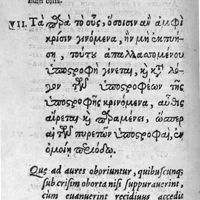 VII. Τὰ παρὰ τὸ οὖς, ὅσοισιν ἂν ἀμφὶ
κρίσιν γινόμενα, ἢν μὴ ἐκπυήσῃ
, τούτου ἀπαλλασσομένου
ὑποστροφὴ γίνεται, καὶ κατὰ λόγον
τῶν ὑποστροφέων τῆς
ὑποστροφῆς κρινόμενα, αὖθις
αἴρεται καὶ παραμένει, ὥσπερ
αἱ τῶν πυρετῶν ὑποστροφαὶ, ἐν
ὁμοίῃ περιόδῳ.
Quæ ad aures oboriuntur, quibuscunq;
sub crisim oborta nisi suppurauerint,
cum euanuerint recidiuus accedit